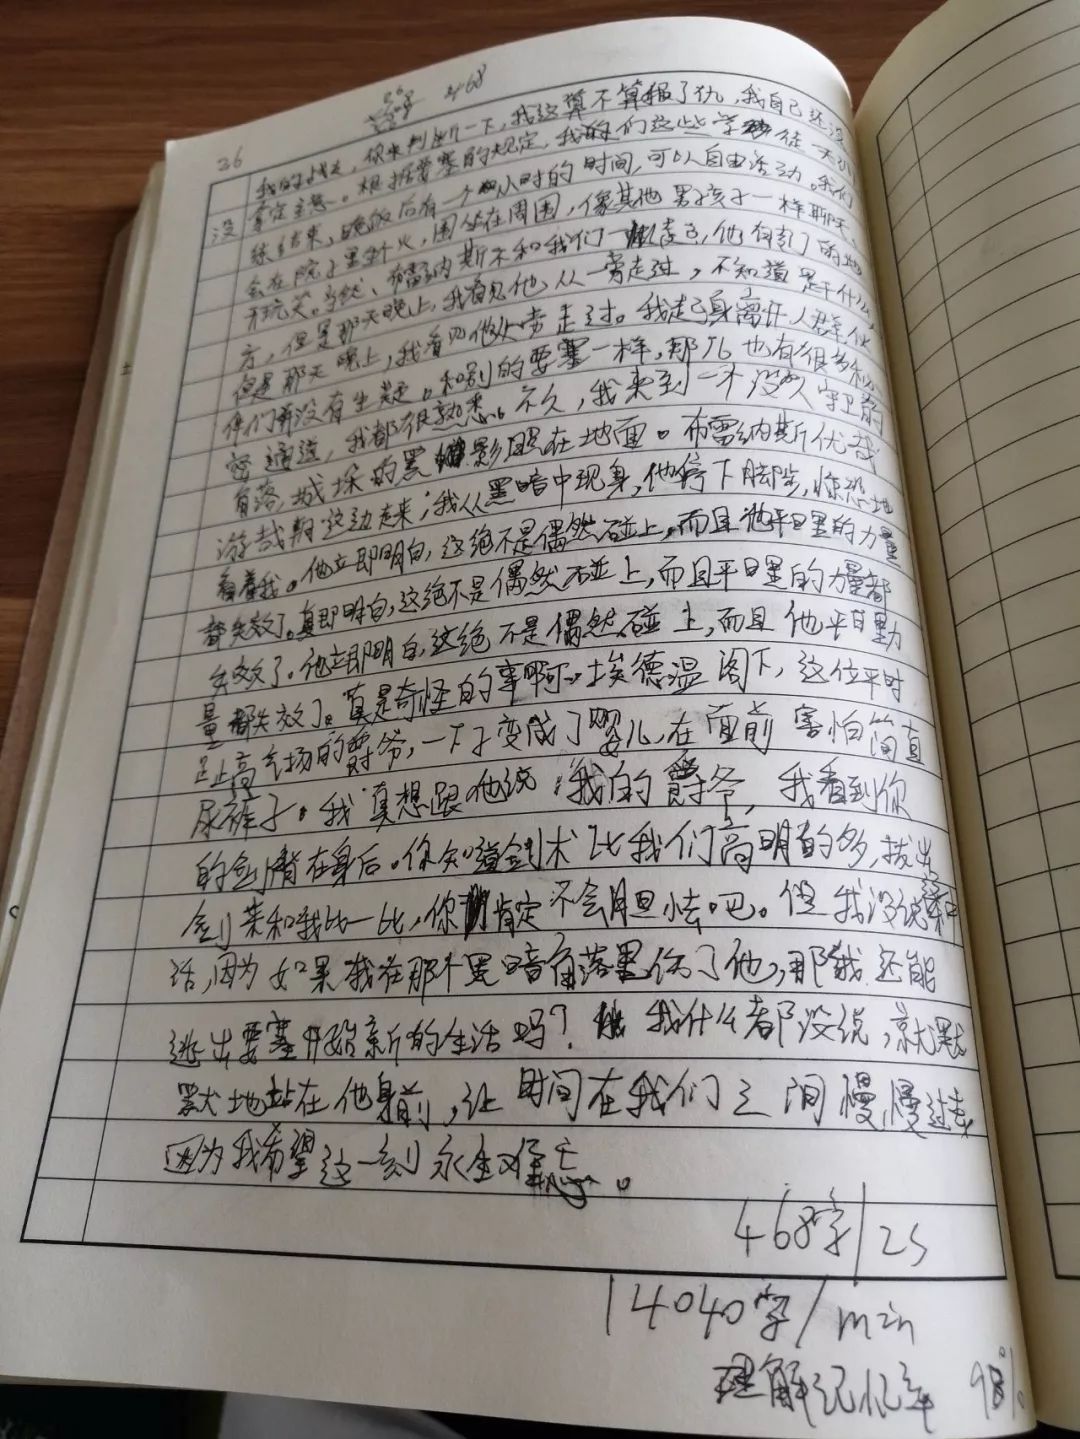 26
468
我的朋友，你来判断一下，我这算不算报了仇，我自己还没
没 拿定主意。根据要塞的规定，我的们这些学徒一天训
练结束，晚饭后有一个小时的时间，可以自由活动。我们
会在院子里升火，围坐在周围，像其他男孩子一样聊天、
开玩笑。当然，布雷纳斯不和我们一起，他有专门的地
方，但是那天晚上，我看见他从一旁走过，不知道是干什么，
但是那天晚上，我看见他从旁走过。我起身离开人群，伙
伴们并没有生疑。和别的要塞一样，那儿也有很多秘
密通道，我都很熟悉。不久，我来到一个没人守卫的
角落，城垛的黑影映在地面。布雷纳斯优哉
游哉朝这边走来；我从黑暗中现身，他停下脚步，惊恐地
看着我。他立即明白，这绝不是偶然碰上，而且他平日里的力量
都失效了。真即明白，这绝不是偶然碰上，而且平日里的力量都
失效了。他立即明白，这绝不是偶然碰上，而且他平日里力
量都失效了。真是奇怪的事啊。埃德温阁下，这位平时
趾高气扬的爵爷，一下子变成了婴儿，在面前害怕简直
尿裤子。我真想跟他说：“我的爵爷，我看到你
的剑背在身后。你知道剑术比我们高明的多，拔出
剑来和我比一比，你肯定不会胆怯吧。但我没说
话，因为如果我在那个黑暗角落里伤了他，那我还能
逃出要塞开始新的生活吗？我什么都没说，就默
默地站在他身前，让时间在我们之间慢慢过去，
因为我希望这一刻永生难忘。
468字/2s
14040字/min
理解记忆率 98%